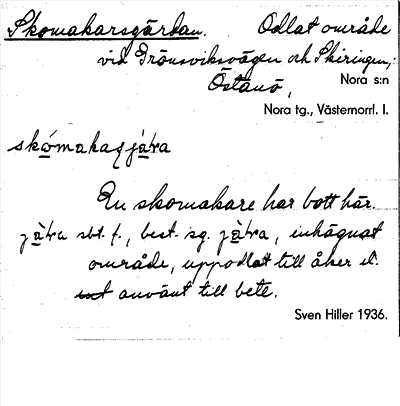 Skomakarsgärdan. Odlat område
vid Grönsviksvägen och Skiringen,
Östanö, Nora s:n
Nora tg., Västernorrl. l.
skómakaʒjä̀ra
En skomakare har bott här.
jä̀ra sbt. f., best. sg. jä̀ra, inhägnat
område, uppodlat till åker el.
använt till bete.
Sven Hiller 1936.